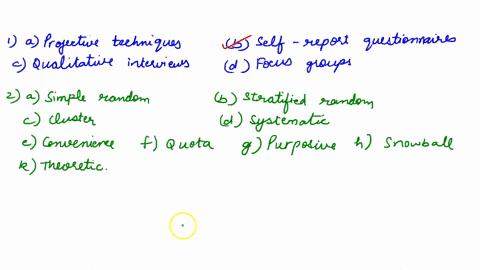 1) a) Projective techniques (b) Self-report questionnaires
c) Qualitative interviews (d) Focus groups
2) a) Simple random (b) Stratified random
c) Cluster (d) Systematic
e) Convenience f) Quota g) Purposive h) Snowball
k) Theoretic.